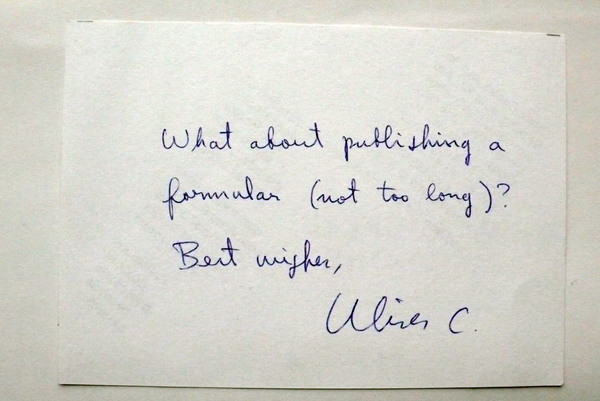 What about publishing a
formular (not too long)?
Best wishes,
Ulises C.